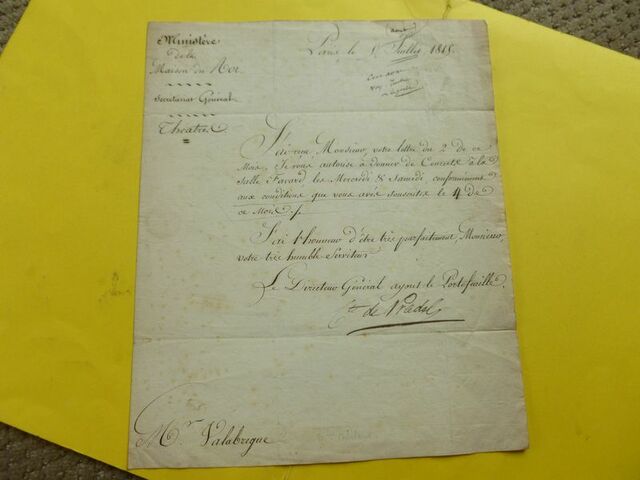 Ministère
de la
Maison du Roi
Secrétariat Général
Théatres
Paris, le 5 Juillet 1815.
J'ai reçu, Monsieur, votre lettre du 2 de ce
Mois. Je vous autorise à donner de Concerts à la
Salle Favard les Mercredi & Samedi conformément
aux conditions que vous avés souscrites le 4 de
ce Mois.
J'ai l'honneur d'être très parfaitement, Monsieur,
votre très humble Serviteur.
Le Directeur Général ayant le Portefeuille.
Cte de Pradel
Mr. Valabregue